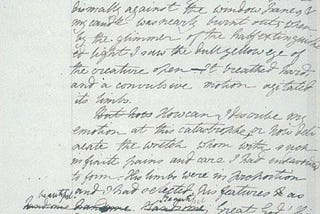 dismally against the window panes, &
my candle was nearly burnt out, when
by the glimmer of the half extinguish
ed light I saw the dull yellow eye of
the creature open — It breathed hard,
and a convulsive motion agitated
its limbs.
But how How can I describe my
emotion at this catastrophe, or how deli
neate the wretch whom with such
infinite pains and care I had endeavoured
to form. His limbs were in proportion
and I had selected his features as
beautiful
handsome handsome. Great God!